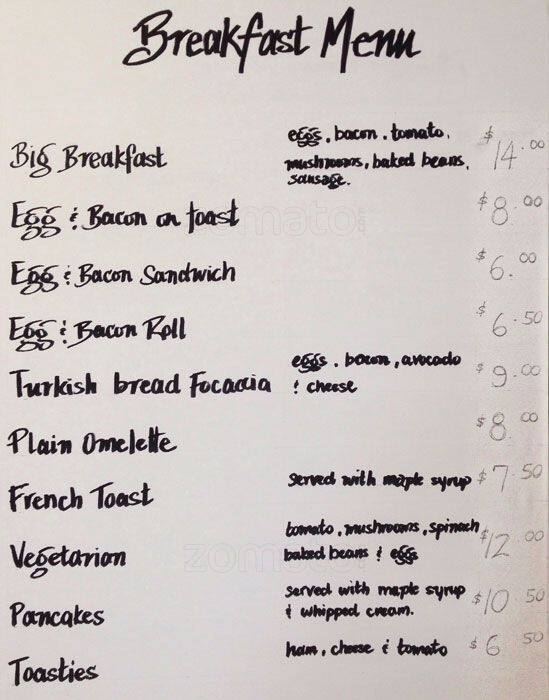 Breakfast Menu
Big Breakfast eggs, bacon, tomato, mushrooms, baked beans, sausage. $14.00
Egg & Bacon on toast $8.00
Egg & Bacon Sandwich $6.00
Egg & Bacon Roll $6.50
Turkish bread Focaccia eggs, bacon, avocado & cheese $9.00
Plain Omelette $8.00
French Toast served with maple syrup $7.50
Vegetarian tomato, mushrooms, spinach baked beans & eggs $12.00
Pancakes served with maple syrup & whipped cream. $10.50
Toasties ham, cheese & tomato $6.50
zomato.com
zomato